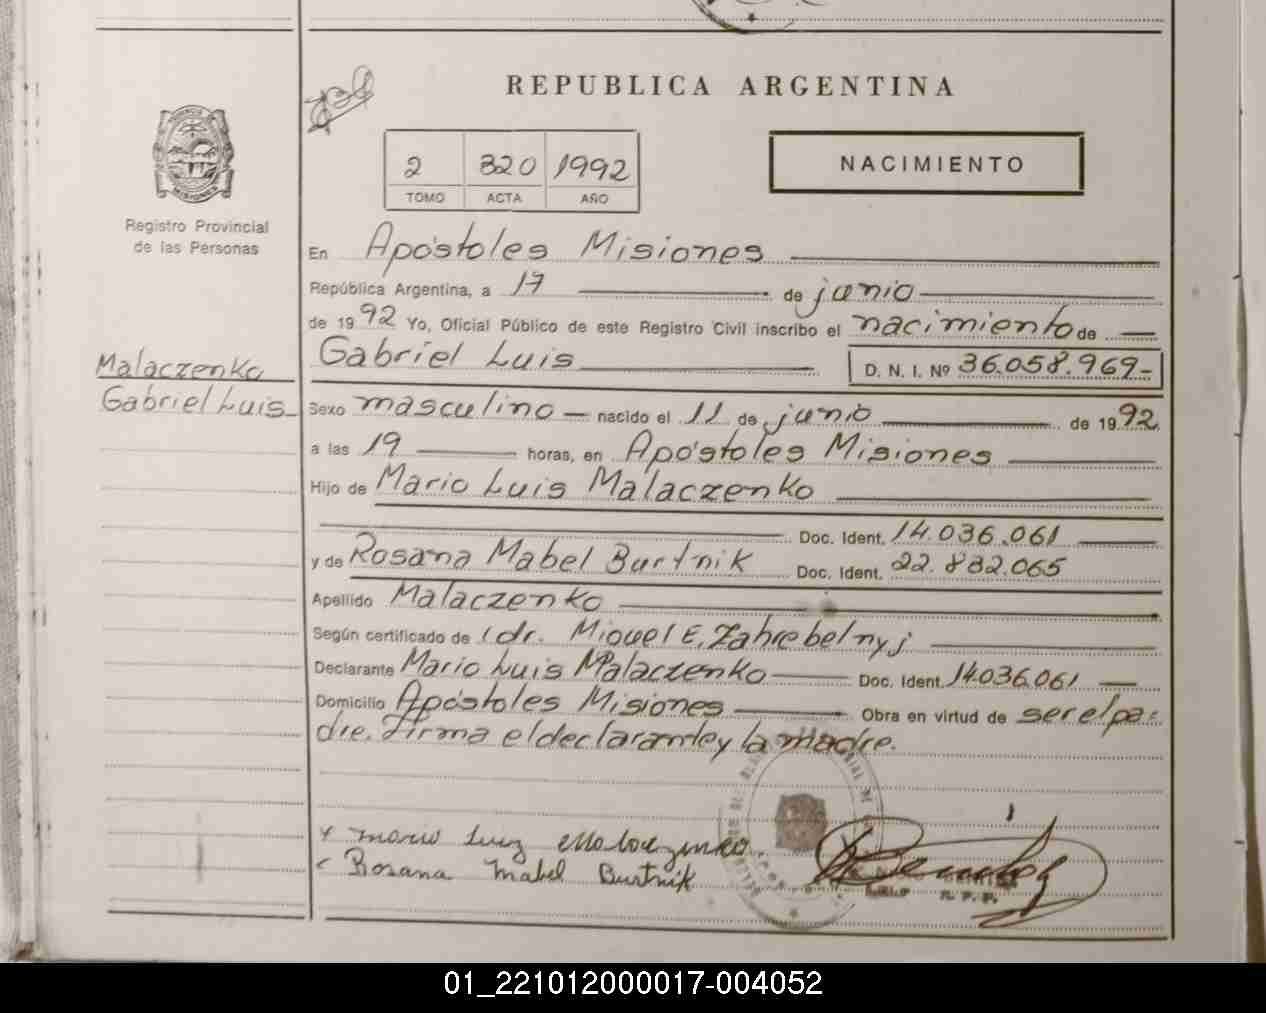 REPUBLICA ARGENTINA
2 320 1992
TOMO ACTA AÑO
NACIMIENTO
Registro Provincial
de las Personas
Malaczenko
Gabriel Luis
En Apóstoles Misiones
República Argentina, a 17 de junio
de 1992 Yo, Oficial Público de este Registro Civil inscribo el nacimiento de
Gabriel Luis D. N. I. Nº 36.058.969-
Sexo masculino nacido el 11 de junio de 1992
a las 19 horas, en Apóstoles Misiones
Hijo de Mario Luis Malaczenko
Doc. Ident. 14.036.061
y de Rosana Mabel Burtnik Doc. Ident. 22.832.065
Apellido Malaczenko
Según certificado de dr. Miguel E. Zahrebelnyj
Declarante Mario Luis Malaczenko Doc. Ident. 14.036.061
Domicilio Apóstoles Misiones Obra en virtud de ser el pa=
dre. Firma el declarante y la madre.
Rosana Mabel Burtnik
01_221012000017-004052